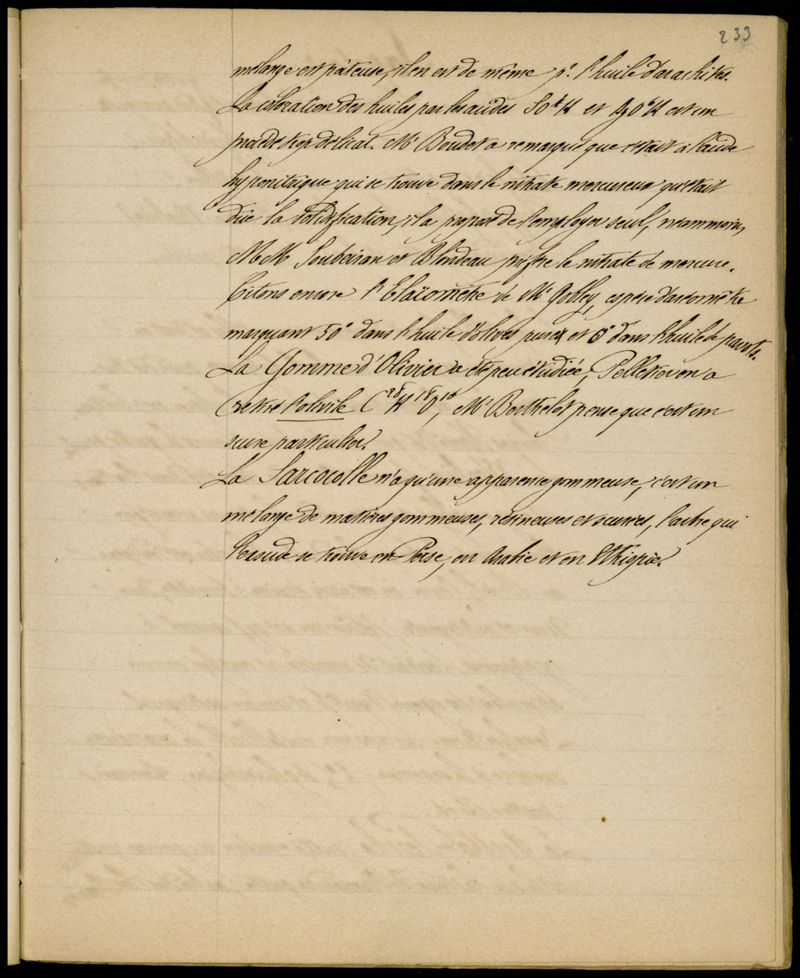 233
mélange est pâteuse, il en est de même pr. l'huile d'arachites.
La coloration des huiles par les acides SO³H et AzO⁵H est un
procédé trop délicat. Mr Boudet a remarqué que c'était à l'acide
hyponitrique qui se trouve dans le nitrate mercureux qu'était
due la solidification, il a proposé de l'employer seul, néammoins,
MM Soubeiran et Blondeau préfère le nitrate de mercure.
Citons encore l'Elaïomètre de Mr Gobley, espèce d'aréomètre
marquant 50° dans l'huile d'olives pure et 0° dans l'huile de pavots.
La Gomme d'Olivier a été peu étudiée, Pelletier en a
retiré l'olivile C²⁸H¹⁸O¹⁰, Mr Berthelot pense que c'est un
sucre particulier.
La Sarcocolle n'a qu'une apparence gommeuse, c'est un
mélange de matières gommeuses, résineuses et sucrées, l'arbre qui
l'exsude se trouve en Perse, en Arabie et en Ethiopie.